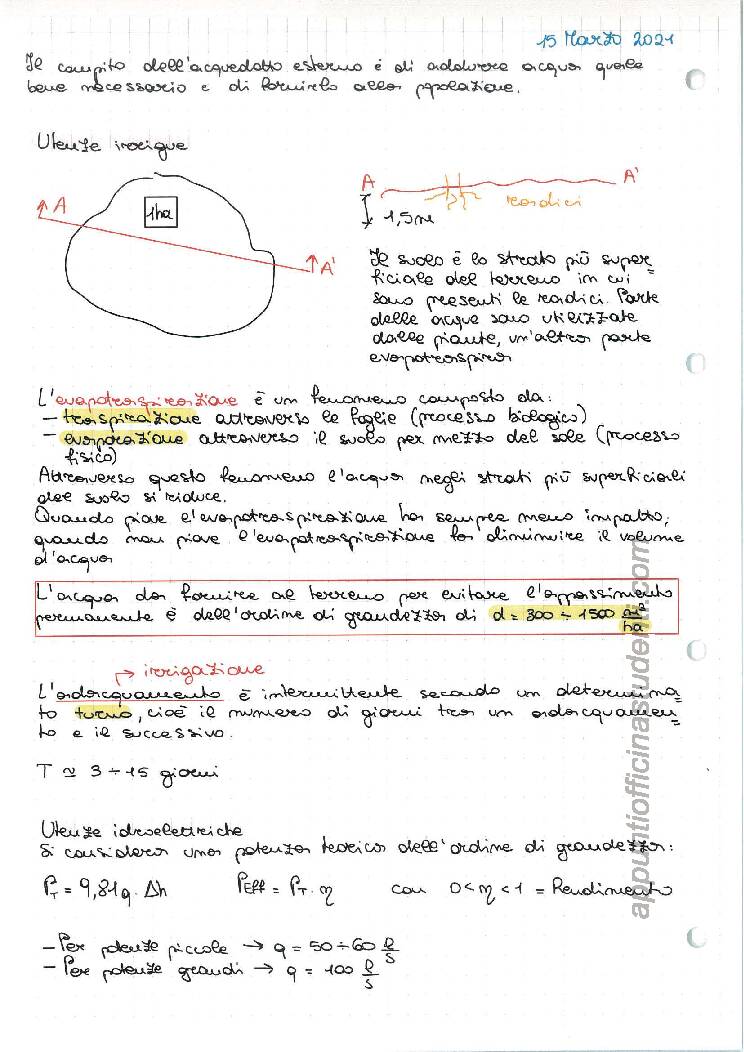 15 Marzo 2021
Il compito dell'acquedotto esterno è di addurre acqua quale
bene necessario e di fornirlo alla popolazione.
Utenze irrigue
A
1ha
A'
A
A'
radici
1,5m
Il suolo è lo strato più super=
ficiale del terreno in cui
sono presenti le radici. Parte
delle acque sono utilizzate
dalle piante, un'altra parte
evapotraspira
L'evapotraspirazione è un fenomeno composto da:
- traspirazione attraverso le foglie (processo biologico)
- evaporazione attraverso il suolo per mezzo del sole (processo
fisico)
Attraverso questo fenomeno l'acqua negli strati più superficiali
del suolo si riduce.
Quando piove l'evapotraspirazione ha sempre meno impatto,
quando non piove l'evapotraspirazione fa diminuire il volume
d'acqua
L'acqua da fornire al terreno per evitare l'appassimento
permanente è dell'ordine di grandezza di d = 300 ÷ 1500 m³/ha
→ irrigazione
L'adacquamento è intermittente secondo un determina=
to turno, cioè il numero di giorni tra un adacquamen=
to e il successivo.
T ≃ 3 ÷ 15 giorni
Utenze idroelettriche
Si considera una potenza teorica dell'ordine di grandezza:
P_T = 9,81 q · Δh P_Eff = P_T · η con 0 < η < 1 = Rendimento
- Per potenze piccole → q = 50 ÷ 60 l/s
- Per potenze grandi → q = 100 l/s
appuntiofficinastudenti.com